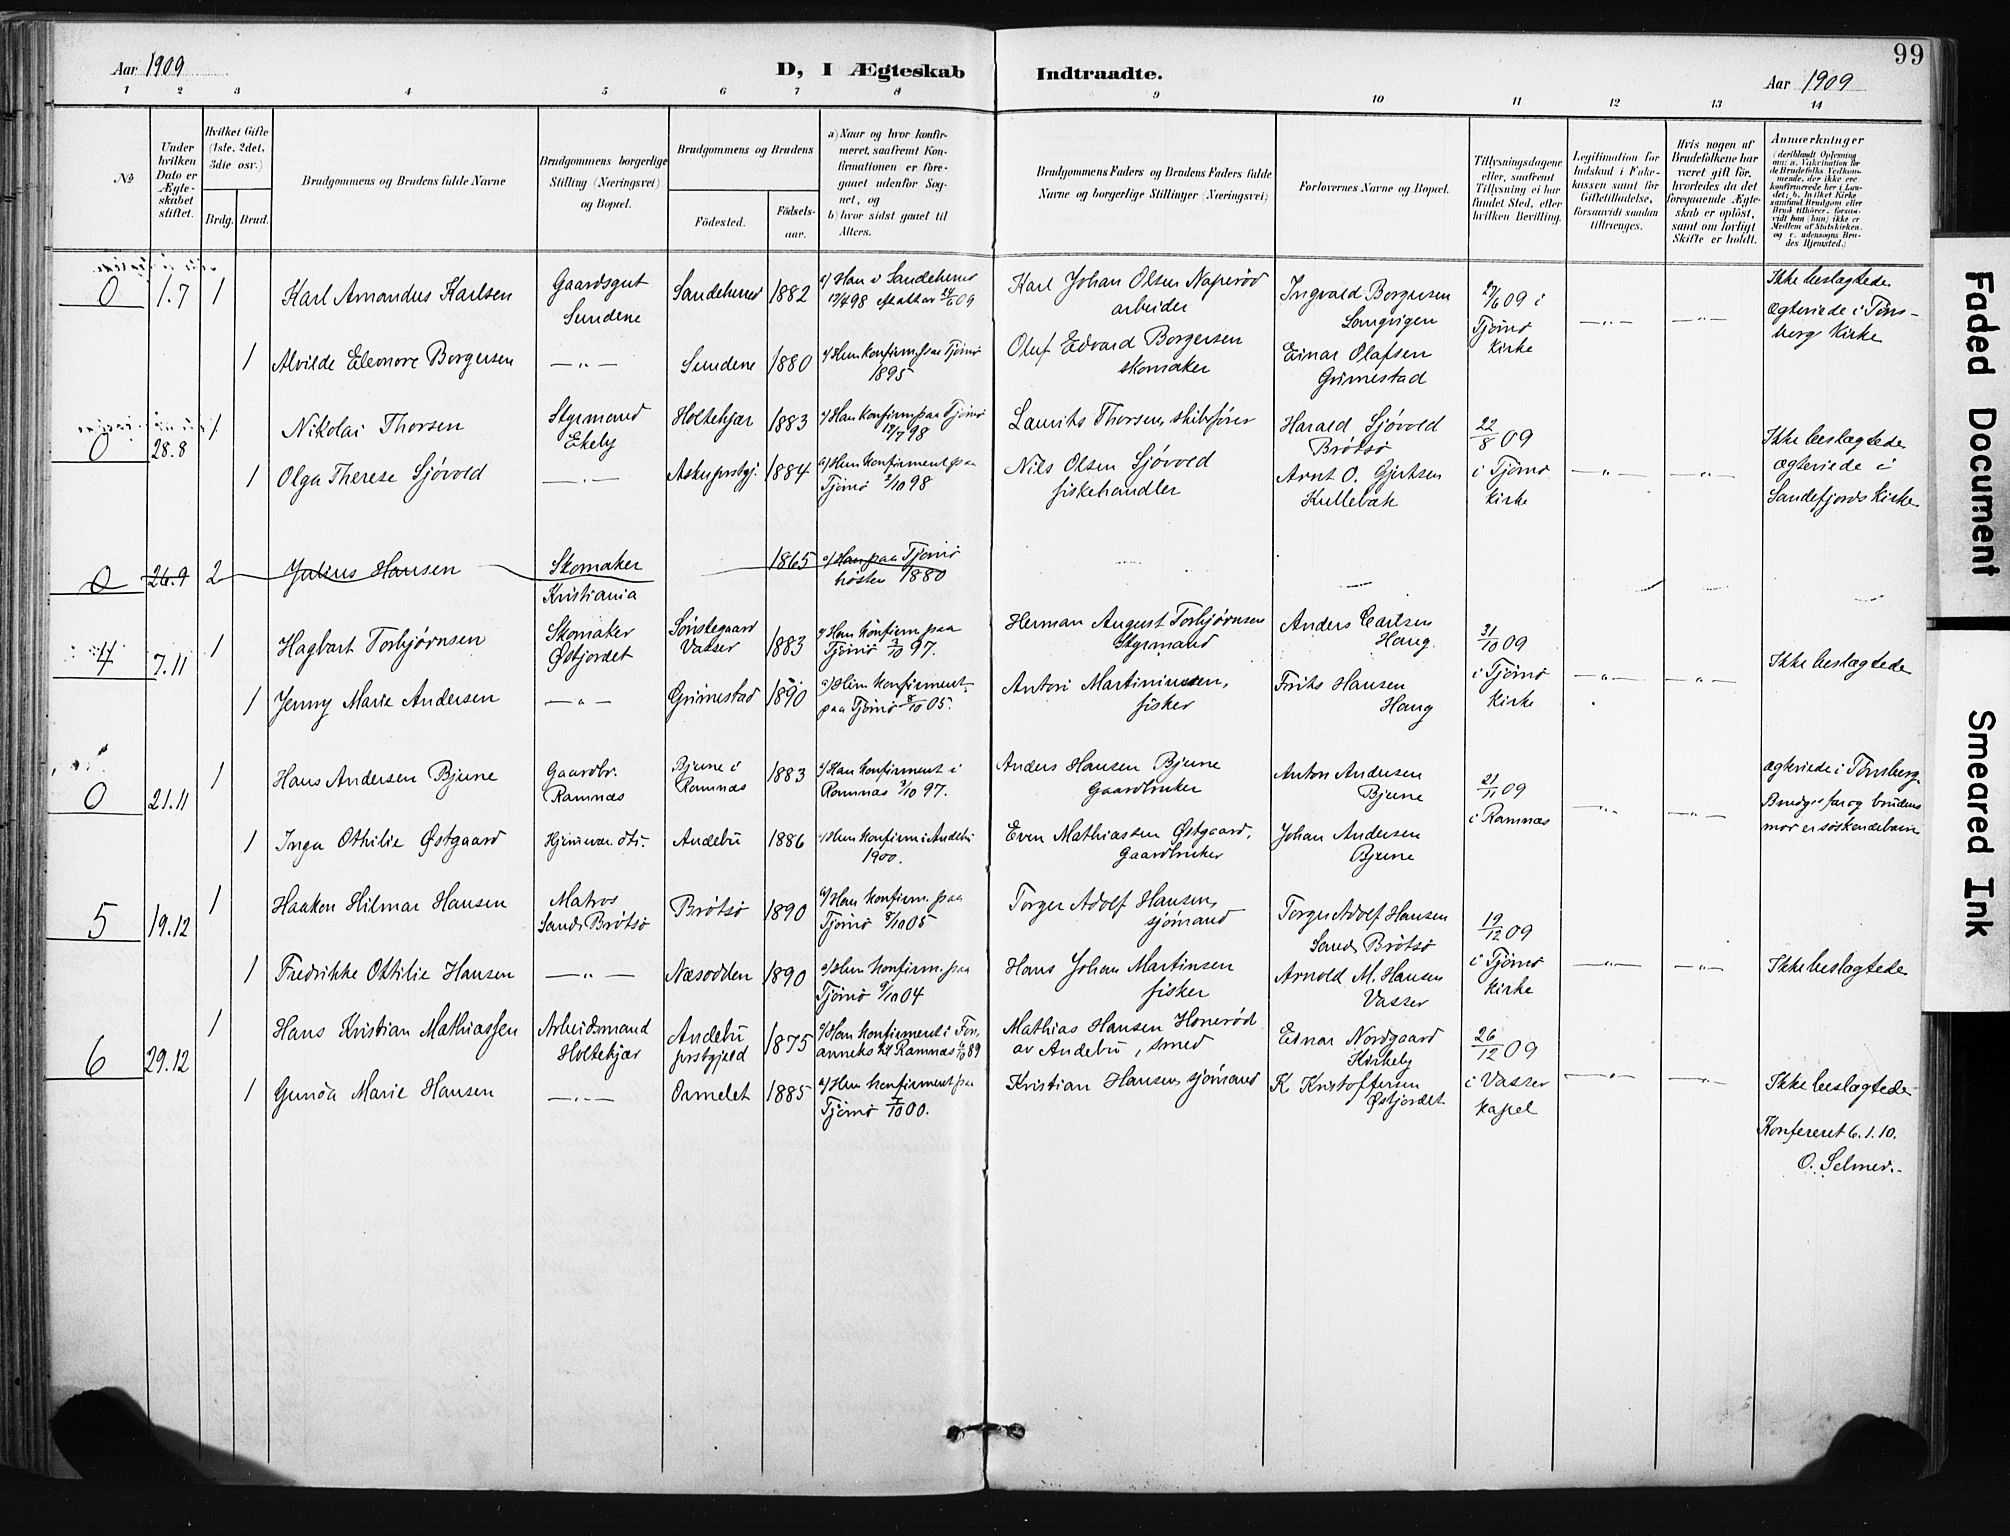 99
Aar 1909
D, I Ægteskab Indtraadte.
Aar 1909
1 2 3 4 5 6 7 8 9 10 11 12 13 14
№
Under hvilken Dato er Ægteskabet stiftet.
Hvilket Gifte (1ste, 2det, 3die osv.)
Brdg. Brud.
Brudgommens og Brudens fulde Navne
Brudgommens borgerlige Stilling (Næringsvei) og Bopæl.
Brudgommens og Brudens
Fødested.
Fødselsaar.
a) Naar og hvor konfirmeret, saafremt Konfirmationen er foregaaet udenfor Sognet, og
b) hvor sidst gaaet til Alters.
Brudgommens Faders og Brudens Faders fulde Navne og borgerlige Stillinger (Næringsvei)
Forlovernes Navne og Bopæl.
Tillysningsdagene eller, saafremt Tillysning ei har fundet Sted, efter hvilken Bevilling.
Legitimation for Indskud i Enkekassen samt for Giftetilladelse, forsaavidt saadan tiltrænges.
Hvis nogen af Brudefolkene har været gift før, hvorledes da det foregaaende Ægteskab er opløst, samt om lovligt Skifte er holdt.
Anmærkninger
(deriblandt Oplysning om: a. Vakcination for de Brudefolks Vedkommende, der ikke ere konfirmerede her i Landet; b. hvilket Kirkesamfund Brudgom eller Brud tilhører, forsaavidt han (hun) ikke er Medlem af Statskirken, og c. udensogns Brudes Hjemsted.)
0 1.7 1 Karl Amandus Karlsen Gaardsgut Sundene Sandeherred 1882 a) Han i Sandeherred 17/4 98 Karl Johan Olsen Naperød arbeider Ingvald Borgersen Langvigen 27/6 09 i Tjømø Kirke —„— —„— Ikke beslægtede ægteviede i Tønsberg Kirke
1 Alvilde Eleonore Borgersen —„— Sundene 1880 a) Hun konfirm. paa Tjømø 1895 Oluf Edvard Borgersen skomaker Einar Olafsen Grimestad
0 28.8 1 Nikolai Thorsen Styrmand Ekely Holtekjær 1883 a) Han konfirm. paa Tjømø 17/7 98 Laurits Thorsen, skibsfører Harald Sjøvold Brøtsø 22/8 09 i Tjømø Kirke —„— —„— Ikke beslægtede ægteviede i Sandefjords Kirke
1 Olga Therese Sjøvold —„— Asker prstgj. 1884 a) Hun konfirmert paa Tjømø 2/10 98 Nils Olsen Sjøvold fiskehandler Arnt O. Gjertsen Kullebak
0 26.9 2 Julius Hansen Skomaker Kristiania 1865 a) Han paa Tjømø høsten 1880
4 7.11 1 Hagbart Torbjørnsen Skomaker Østjordet Sønstegaard Vasser 1883 a) Han konfirm. paa Tjømø 3/10 97. Herman August Torbjørnsen Styrmand Anders Carlsen Haug 31/10 09 i Tjømø Kirke —„— —„— Ikke beslægtede
1 Jenny Marie Andersen —„— Grimestad 1890 a) Hun konfirment. paa Tjømø 8/10 05. Anton Martiniussen, fisker Frits Hansen Haug
0 21.11 1 Hans Andersen Bjune Gaardbr. Ramnæs Bjune i Ramnæs 1883 a) Han konfirment i Ramnæs 3/10 97. Anders Hansen Bjune Gaardbruker Anton Andersen Bjune 21/11 09 i Ramnæs —„— —„— ægteviede i Tønsberg Brudg. far og brudens mor er søskendebarn
1 Inga Othilie Østgaard Hjemmev. dtr. Andebu 1886 a) Hun konfirm. i Andebu 1900. Even Mathiassen Østgaard, Gaardbruker Johan Andersen Bjune
5 19.12 1 Haakon Hilmar Hansen Matros Sand, Brøtsø Brøtsø 1890 a) Han konfirm. paa Tjømø 8/10 05 Torger Adolf Hansen, sjømand Torger Adolf Hansen Sand, Brøtsø 19/12 09 i Tjømø Kirke —„— —„— Ikke beslægtede
1 Fredrikke Othilie Hansen —„— Næsodden 1890 a) Hun konfirm. paa Tjømø 9/10 04 Hans Johan Martinsen fisker Arnold M. Hansen Vasser
6 29.12 1 Hans Kristian Mathiassen Arbeidsmand Holtekjær Andebu prstgjeld 1875 a) Han konfirmeret i Fon, anneks til Ramnæs 6/10 89 Mathias Hansen Honerød av Andebu, smed Einar Nordgaard Kirkeby 26/12 09 i Vasser Kapel —„— —„— Ikke beslægtede
1 Gunda Marie Hansen —„— Ormelet 1885 a) Hun konfirment paa Tjømø 7/10 00. Kristian Hansen sjømand K Kristoffersen Østjordet
Konfereret 6.1.10.
O. Selmer.
Faded Document
Smeared Ink